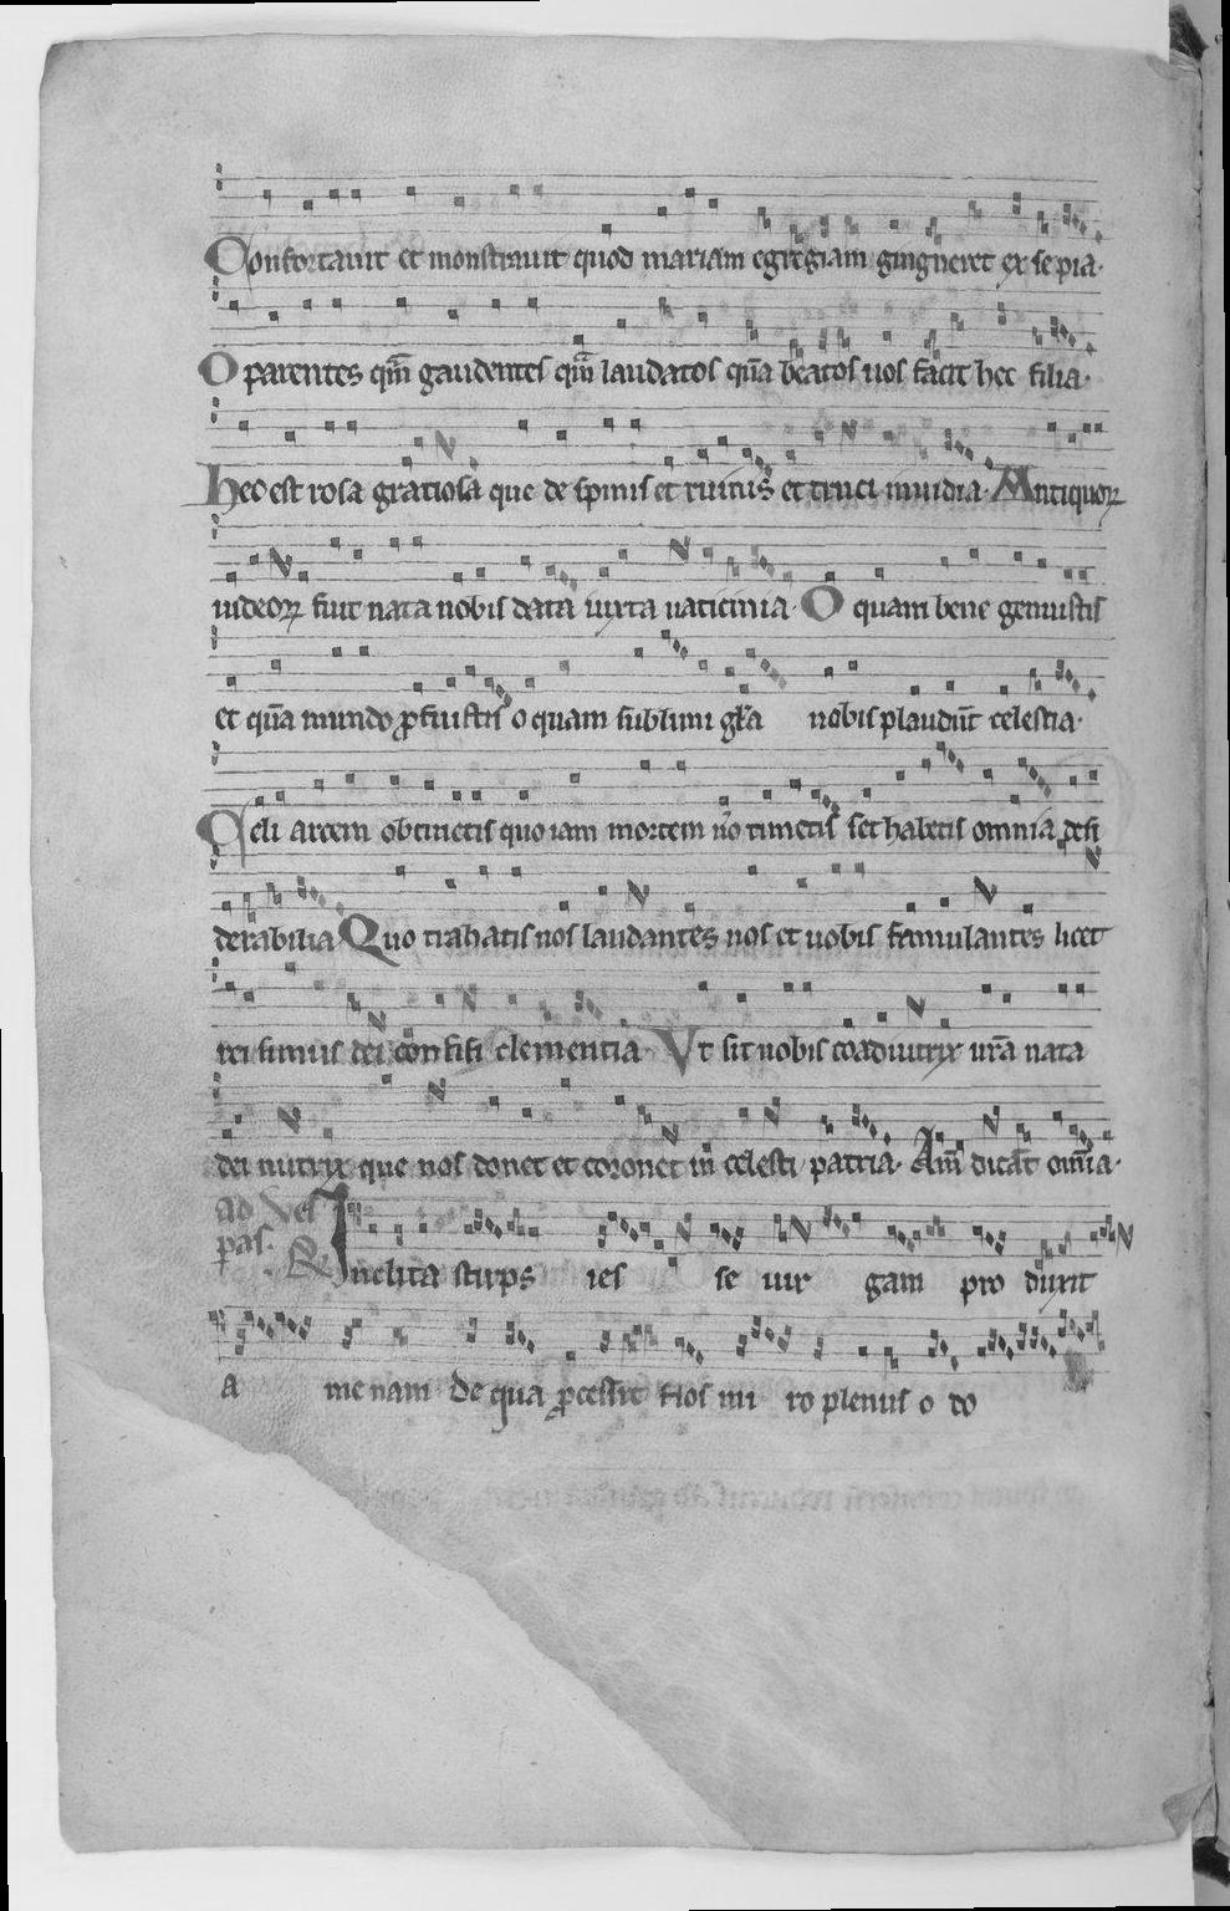 Confortauit et monstrauit quod mariam egregiam gingneret ex se pia.
O parentes qm̄ gaudentes qm̄ laudatos qūa beatos uos facit hec filia.
Hec est rosa gratiosa que de spinis et ruinis et truci inuidia. Antiquoꝝ
iudeoꝝ fuit nata nobis data iuxta uaticinia. O quam bene genuistis
et qūa mundo ꝓfuistis o quam sublimi gl̄a nobis plaudūt celestia.
Celi arcem obtinetis quo iam mortem nō timetis set habetis omnia desi
derabilia Quo trahatis nos laudantes nos et uobis famulantes licet
rei simus dei confisi clementia. Vt sit nobis coadiutrix ur̄a nata
dei nutrix que nos donet et coronet in celesti patria. Am̄ dicāt omīa.
ad Ves
pas. R
Inclita stirps ies se uir gam pro duxit
a me nam de qua ꝓcessit flos mi ro plenus o do